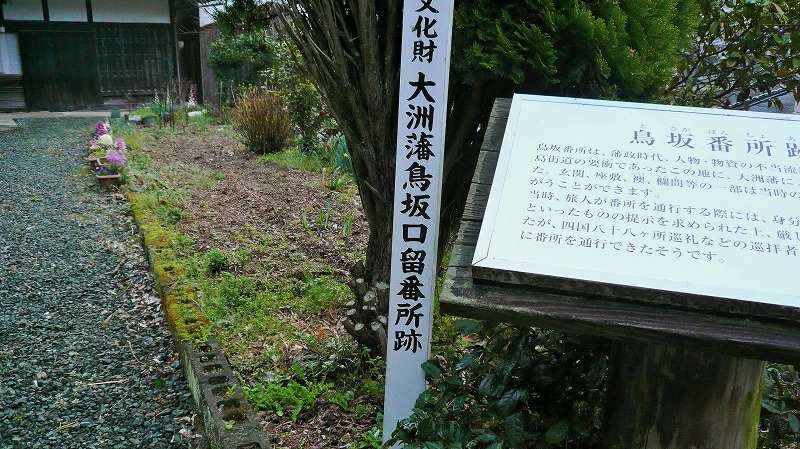 文化財 大洲藩鳥坂口留番所跡
とさかばんしょあ
鳥坂番所跡
鳥坂番所は、藩政時代、人物・物資の不当流
島街道の要衝であったこの地に、大洲藩に
た。玄関、座敷、襖、欄間等の一部は当時の
がうことができます。
当時、旅人が番所を通行する際には、身分
といったものの提示を求められた上、厳し
たが、四国八十八ヶ所巡礼などの巡拝者
に番所を通行できたそうです。